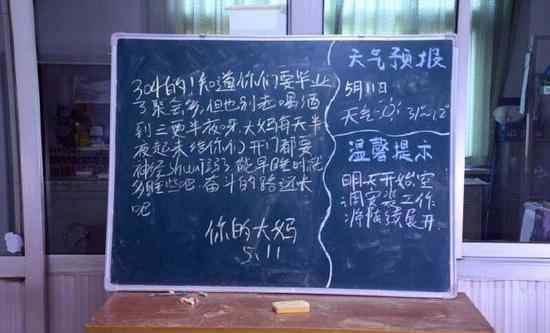 304的！知道你们要毕业
了聚会多，但也别老喝酒
到三更半夜呀，大妈每天半
夜起来给你们开门都要
神经shuai弱，能早睡时就
多睡些吧，奋斗的路还长
呢
你的大妈
5.11
天气预报
5月11日
天气 31°~12°
温馨提示
明天开始空
调安装工作
将陆续展开